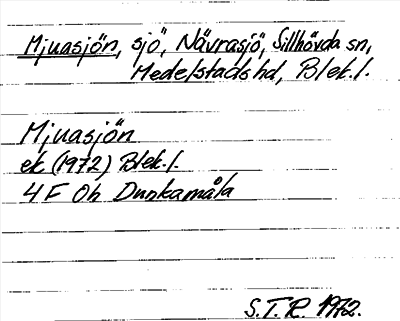 Mjuasjön, sjö, Nävrasjö, Sillhövda sn,
Medelstads hd, Blek.l.
Mjuasjön
ek (1972) Blek.l.
4 F Oh Dunkamåla
S.T.R. 1972.